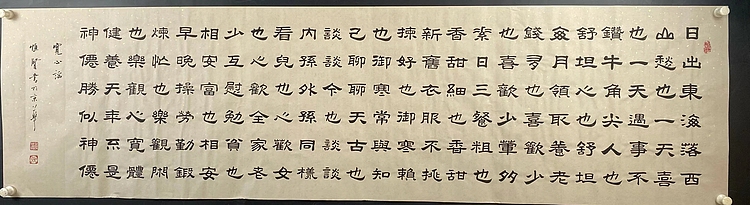 日出東海落西
山愁也一天喜
也一天遇事不
鑽牛角尖人也
舒坦心也舒坦
每月領取養老
錢多也喜歡少
也喜歡少葷多
素日三餐粗也
香甜細也香甜
新舊衣服不挑
揀好也御寒賴
也御寒常與知
己聊聊天古也
談談今也談談
內孫外孫同樣
看兒也心歡女
也心歡全家老
少互慰勉貧也
相安富也相安
早晚操勞勤鍛
煉忙也樂觀閑
也樂觀心寬體
健養天年不是
神僊勝似神僊
寬心謠
惟賢書於京華